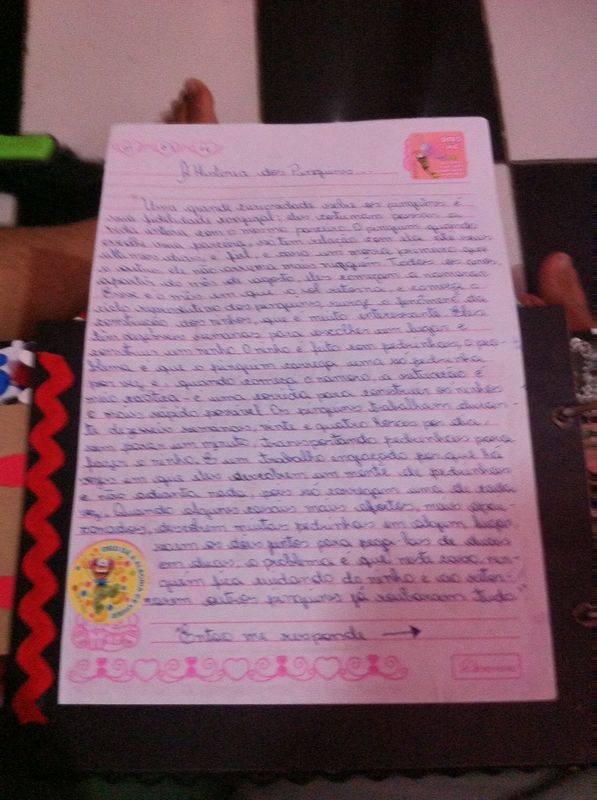 A História dos Pinguins...
"Uma grande curiosidade sobre os pinguins é
sua fidelidade conjugal: eles costumam passar a
vida inteira com o mesmo parceiro. O pinguim quando
escolhe sua parceira, só tem relação com ela até seus
últimos dias, é fiel, e caso um morra primeiro que
o outro ele não arruma mais ninguém. Todos os anos,
apartir do mês de agosto, eles começam a namorar.
Esse é o mês em que o sol retorna, e começa o
ciclo reprodutivo dos pinguins surge o fenômeno da
construção dos ninhos, que é muito interessante. Eles
têm dezesseis semanas para escolher um lugar e
construir um ninho. O ninho é feito com pedrinhas, o pro-
blema é que o pinguim carrega uma só pedrinha
por vez e, quando começa o namoro, a situação é
meio caótica - é uma corrida para construir os ninhos
o mais rápido possível. Os pinguins trabalham duran-
te dezesseis semanas, vinte e quatro horas por dia,
sem parar um minuto, transportando pedrinhas para
fazer o ninho. É um trabalho engraçado por que há
vezes em que eles descobrem um monte de pedrinhas
e não adianta nada, pois só carregam uma de cada
vez. Quando alguns casais mais afoitos, mais apai-
xonados, descobrem muitas pedrinhas em algum lugar,
saem os dois juntos para pega-las de duas
em duas, o problema é que, neste caso nin-
guém fica cuidando do ninho e ao retor-
narem outros pinguins já roubaram tudo."
"Então me responde →